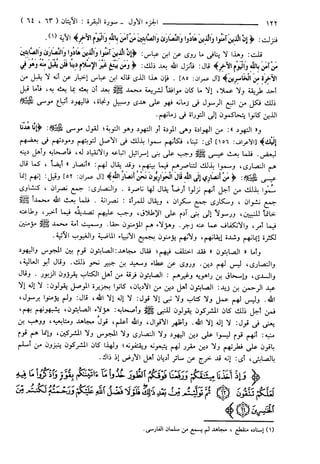 ١٢٢ الجزء الأول - سورة البقرة : الآيتان (٦٣ ، ٦٤)
فنزلت: ﴿إِنَّ الَّذِينَ آمَنُوا وَالَّذِينَ هَادُوا وَالنَّصَارَى وَالصَّابِئِينَ مَنْ آمَنَ بِاللَّهِ وَالْيَوْمِ الْآخِرِ﴾ الآية (١).
قلت: وهذا لا ينافي ما روي عن ابن عباس: ﴿إِنَّ الَّذِينَ آمَنُوا وَالَّذِينَ هَادُوا وَالنَّصَارَى وَالصَّابِئِينَ
مَنْ آمَنَ بِاللَّهِ وَالْيَوْمِ الْآخِرِ﴾ قال: فأنزل الله بعد ذلك: ﴿وَمَن يَبْتَغِ غَيْرَ الْإِسْلَامِ دِينًا فَلَن يُقْبَلَ مِنْهُ وَهُوَ فِي
الْآخِرَةِ مِنَ الْخَاسِرِينَ﴾ [آل عمران: ٨٥]. فإن هذا الذي قاله ابن عباس إخبار عن أنه لا يقبل من
أحد طريقة ولا عملا، إلا ما كان موافقاً لشريعة محمد ﷺ بعد أن بعثه بما بعثه به، فأما قبل
ذلك فكل من اتبع الرسول في زمانه فهو على هدى وسبيل ونجاة، فاليهود أتباع موسى
الذين كانوا يتحاكمون إلى التوراة في زمانهم.
و« اليهود »: من الهوادة وهي المودة أو التهود وهو التوبة؛ لقول موسى ﴿إِنَّا هُدْنَا
إِلَيْكَ﴾ [الأعراف: ١٥٦] أي: تبنا، فكأنهم سموا بذلك في الأصل لتوبتهم ومودتهم في بعضهم
لبعض. فلما بعث عيسى وجب على بني إسرائيل اتباعه والانقياد له، فأصحابه وأهل دينه
هم النصارى، وسموا بذلك لتناصرهم فيما بينهم، وقد يقال لهم: «أنصار» أيضاً، كما قال
﴿مَنْ أَنصَارِي إِلَى اللَّهِ قَالَ الْحَوَارِيُّونَ نَحْنُ أَنصَارُ اللَّهِ﴾ [آل عمران: ٥٢] وقيل: إنهم إنما
سُمُّوا بذلك من أجل أنهم نزلوا أرضاً يقال لها ناصرة. والنصارى: جمع نصران، كنشاوى
جمع نشوان، وسكارى جمع سكران، ويقال للمرأة: نصرانة. فلما بعث الله محمداً ﷺ
خاتماً للنبيين، ورسولاً إلى بني آدم على الإطلاق، وجب عليهم تصديقُه فيما أخبر، وطاعته
فيما أمر، والانكفاف عما عنه زجر. وهؤلاء هم المؤمنون حقا. وسميت أمة محمد ﷺ مؤمنين
لكثرة إيمانهم وشدة إيقانهم، ولأنهم يؤمنون بجميع الأنبياء الماضية والغيوب الآتية.
وأما « الصابئون » فقد اختلف فيهم، فقال مجاهد: الصابئون قوم بين المجوس واليهود
والنصارى، ليس لهم دين. وروي عن عطاء وسعيد بن جبير نحو ذلك. وقال أبو العالية،
والسدي، وإسحاق بن راهويه وغيرهم: الصابئون فرقة من أهل الكتاب يقرؤون الزبور. وقال
عبد الرحمن بن زيد: الصابئون أهل دين من الأديان، كانوا بجزيرة الموصل يقولون: لا إله إلا
الله. وليس لهم عمل ولا كتاب ولا نبي إلا قول: لا إله إلا الله، قال: ولم يؤمنوا برسول،
فمن أجل ذلك كان المشركون يقولون للنبي ﷺ وأصحابه: هؤلاء الصابئون، يشبهونهم بهم،
يعني في قول: لا إله إلا الله. وأظهر الأقوال، والله أعلم، قول مجاهد ومتابعيه، ووهب بن
منبه: أنهم قوم ليسوا على دين اليهود ولا النصارى ولا المجوس ولا المشركين، وإنما هم قوم
باقون على فطرتهم ولا دين مقرر لهم يتبعونه ويقتفونه؛ ولهذا كان المشركون ينبزون من أسلم
بالصابئي، أي: إنه قد خرج عن سائر أديان أهل الأرض إذ ذاك.
﴿وَإِذْ أَخَذْنَا مِيثَاقَكُمْ وَرَفَعْنَا فَوْقَكُمُ الطُّورَ خُذُوا مَا آتَيْنَاكُم بِقُوَّةٍ وَاذْكُرُوا مَا فِيهِ
لَعَلَّكُمْ تَتَّقُونَ ﴿٦٣﴾ ثُمَّ تَوَلَّيْتُم مِّن بَعْدِ ذَلِكَ فَلَوْلَا فَضْلُ اللَّهِ عَلَيْكُمْ وَرَحْمَتُهُ لَكُنتُم مِّنَ
الْخَاسِرِينَ ﴿٦٤﴾
(١) إسناده منقطع ، مجاهد لم يسمع من سلمان الفارسي.